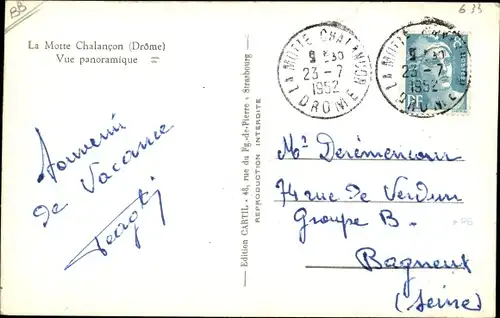 BB
633
La Motte Chalançon (Drôme)
Vue panoramique
LA MOTTE CHALANÇON
23 - 7
1952
DROME
LA MOTTE CHALANÇON
23 - 7
1952
DROME
Souvenir
de Vacance
Edition CARTIL - 48, rue du Fg.-de-Pierre - Strasbourg
REPRODUCTION INTERDITE
74 rue de Verdun
Groupe B.
Bagneux
(Seine)